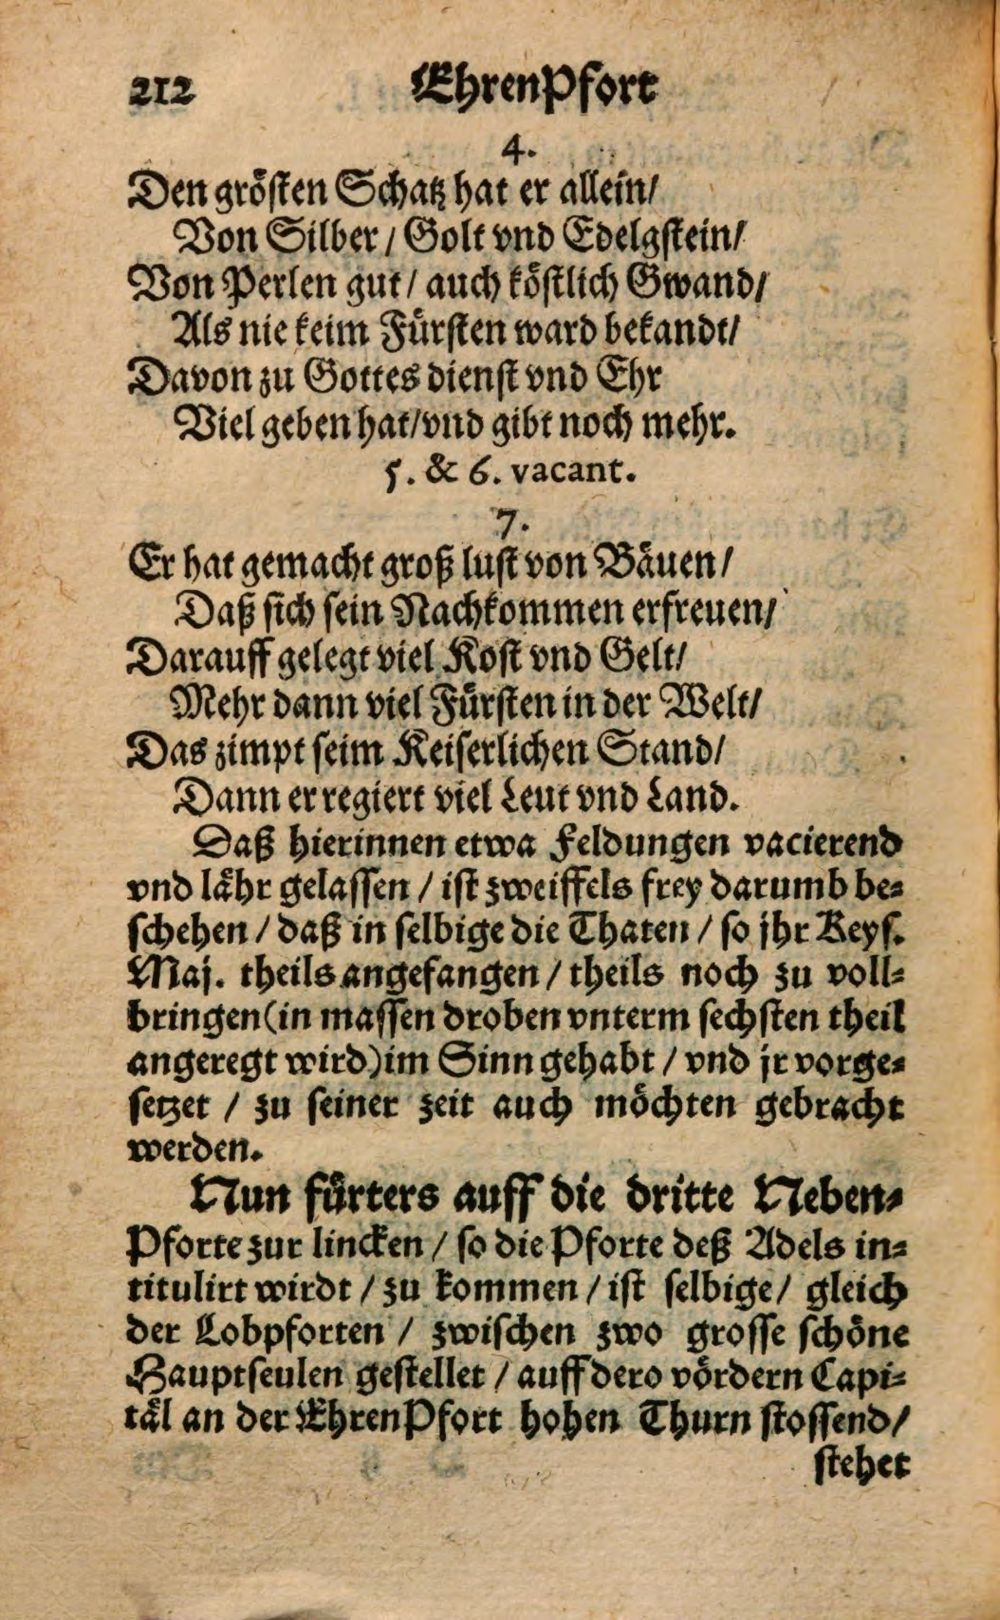 212 EhrenPfort
4.
Den grösten Schatz hat er allein/
Von Silber / Golt vnd Edelgstein/
Von Perlen gut / auch köstlich Gwand/
Als nie keim Fürsten ward bekandt/
Davon zu Gottes dienst vnd Ehr
Viel geben hat/vnd gibt noch mehr.
5. & 6. vacant.
7.
Er hat gemacht groß lust von Bäuen/
Daß sich sein Nachkommen erfreuen/
Darauff gelegt viel Kost vnd Gelt/
Mehr dann viel Fürsten in der Welt/
Das zimpt seim Keiserlichen Stand/
Dann er regiert viel Leut vnd Land.
Daß hierinnen etwa Feldungen vacierend
vnd lähr gelassen / ist zweiffels frey darumb be-
schehen / daß in selbige die Thaten / so jhr Keys.
Maj. theils angefangen / theils noch zu voll-
bringen (in massen droben vnterm sechsten theil
angeregt wird) im Sinn gehabt / vnd jr vorge-
setzet / zu seiner zeit auch möchten gebracht
werden.
Nun fürters auff die dritte Neben-
Pforte zur lincken / so die Pforte deß Adels in-
titulirt wirdt / zu kommen / ist selbige / gleich
der Lobpforten / zwischen zwo grosse schöne
Hauptseulen gestellet / auff dero vördern Capi-
täl an der EhrenPfort hohen Thurn stossend/
stehet